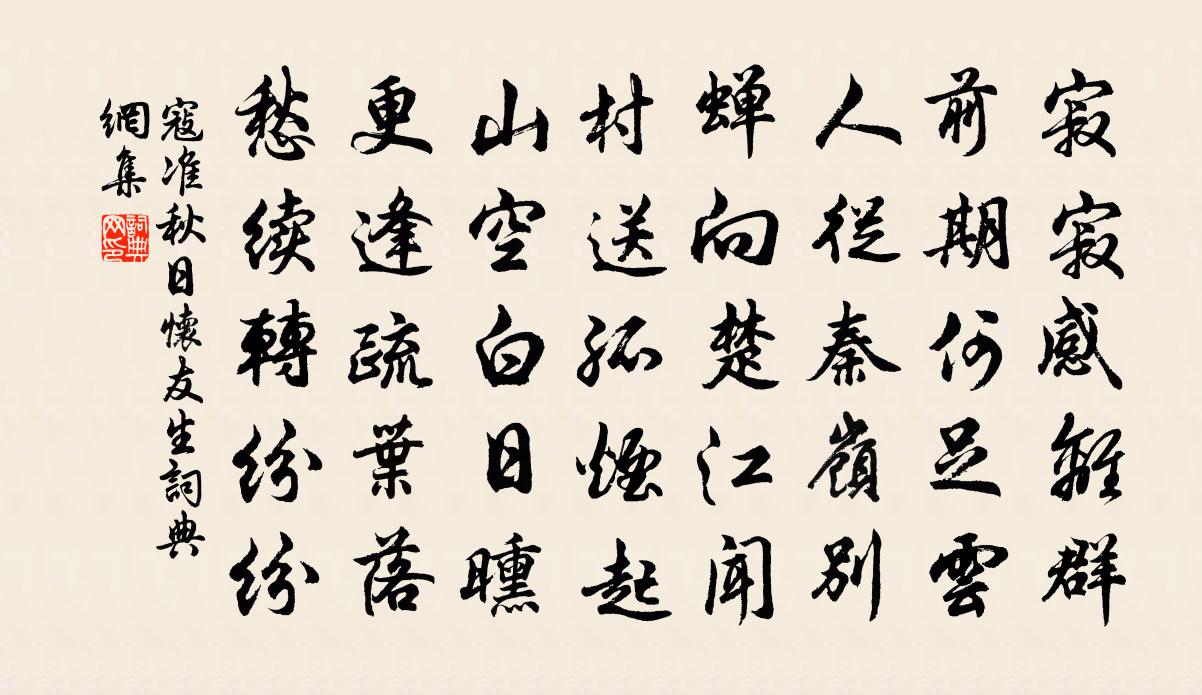 寂寂感離群
前期何足雲
人從秦嶺別
蝉向楚江聞
村送孤煙起
山空白日曛
更逢疏葉落
愁续轉紛紛
寇准秋日懷友生詞典
網集
詞典
网印